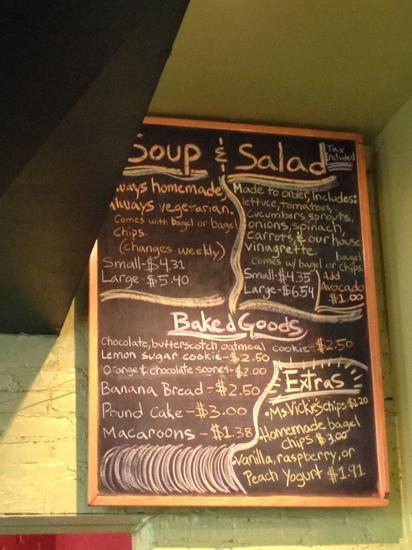 Soup & Salad
Tax Included
always homemade,
always vegetarian.
Comes with bagel or bagel
chips.
(changes weekly)
Small-$4.31
Large-$5.40
Made to order, Includes:
lettuce, tomatoes,
Cucumbers, sprouts,
onions, spinach,
carrots, & our house
vinagrette.
Comes w/ bagel or bagel chips
Small-$4.35
Large-$6.54
Add
Avocado
$1.00
Baked Goods
Chocolate, butterscotch, oatmeal cookie-$2.50
Lemon sugar cookie-$2.50
Orange & chocolate scones-$2.00
Banana Bread-$2.50
Pound Cake-$3.00
Macaroons-$1.38
Extras
•Ms Vickie's chips $1.20
•Homemade bagel
chips $3.00
•Vanilla, raspberry, or
Peach Yogurt $1.91